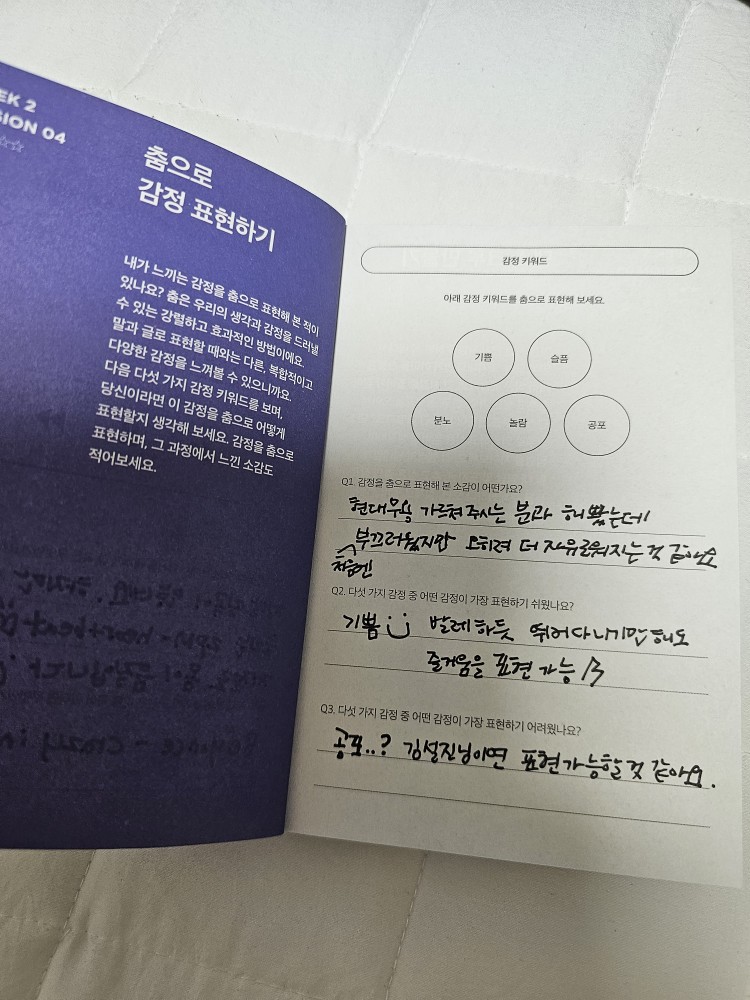 EK 2
SION 04
☆☆
춤으로
감정 표현하기
내가 느끼는 감정을 춤으로 표현해 본 적이
있나요? 춤은 우리의 생각과 감정을 드러낼
수 있는 강렬하고 효과적인 방법이에요.
말과 글로 표현할 때와는 다른, 복합적이고
다양한 감정을 느껴볼 수 있으니까요.
다음 다섯 가지 감정 키워드를 보며,
당신이라면 이 감정을 춤으로 어떻게
표현할지 생각해 보세요. 감정을 춤으로
표현하며, 그 과정에서 느낀 소감도
적어보세요.
감정 키워드
아래 감정 키워드를 춤으로 표현해 보세요.
기쁨 슬픔
분노 놀람 공포
Q1. 감정을 춤으로 표현해 본 소감이 어떤가요?
현대무용 가르쳐주시는 분과 해봤는데
처음엔 부끄러웠지만 오히려 더 자유로워지는 것 같아요
Q2. 다섯 가지 감정 중 어떤 감정이 가장 표현하기 쉬웠나요?
기쁨 발레하듯 뛰어다니기만 해도
즐거움을 표현 가능
Q3. 다섯 가지 감정 중 어떤 감정이 가장 표현하기 어려웠나요?
공포..? 김설진님이면 표현가능할 것 같아요.